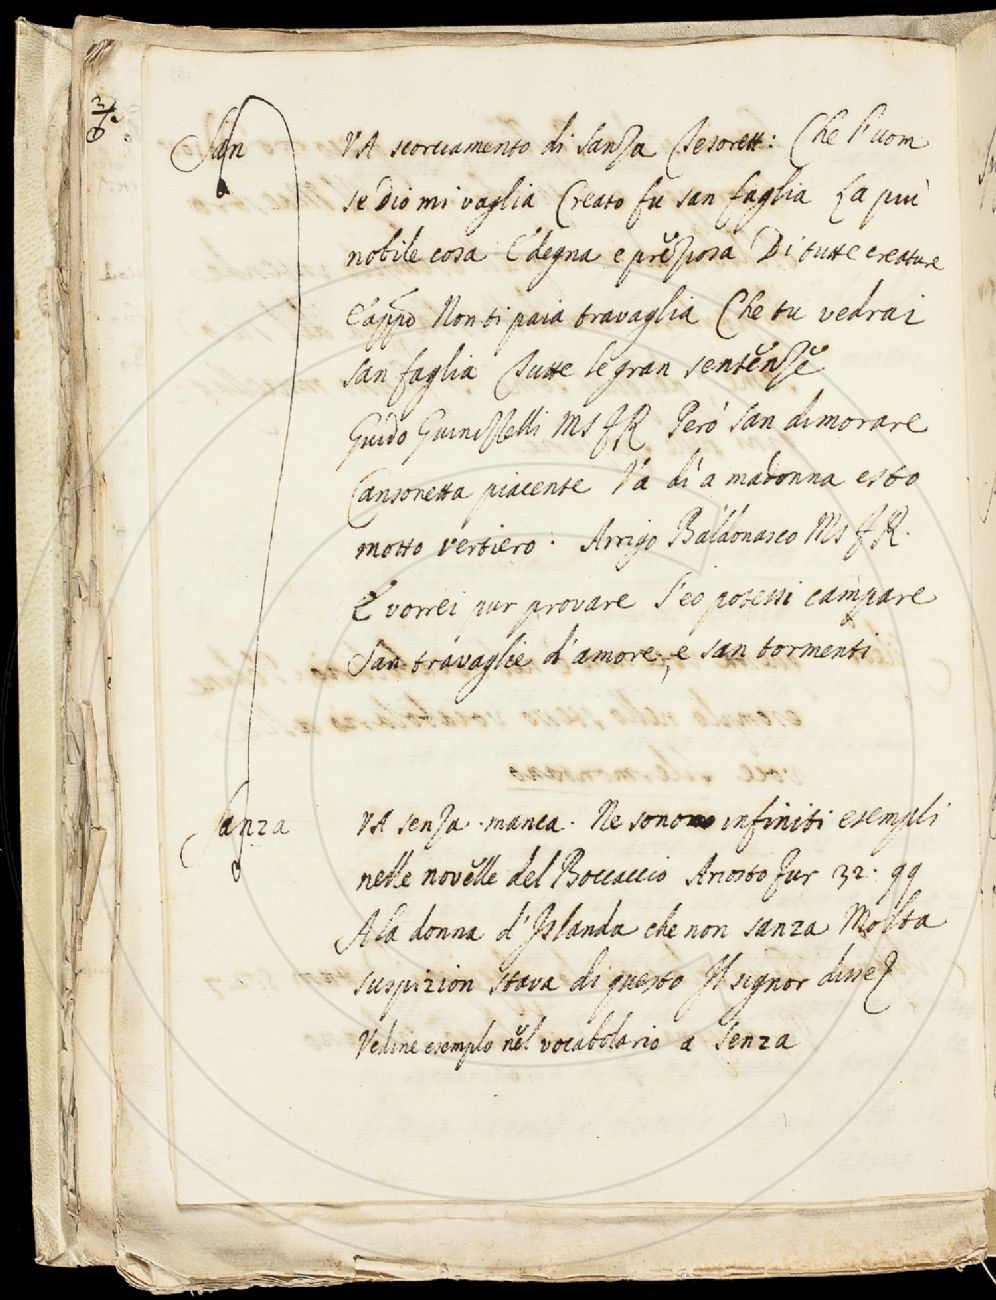 San VA scorciamento di Sanza Tesorett: Che l'uom
se Dio mi vaglia Creato fu san faglia La più
nobile cosa E degna e preziosa Di tutte creature
E appo Non ti paia travaglia Che tu vedrai
san faglia Tutte le gran sentenze
Guido Guinizelli Ms FR Però san dimorare
Cansonetta piacente Và dì a madonna esto
motto vertiero: Arrigo Baldonasco Ms FR.
E vorrei pur provare S'eo potessi campare
San travaglie d'amore, e san tormenti
Sanza VA senza .manca. Ne sono infiniti esempli
nelle novelle del Boccaccio Ariosto Fur 32. 99
A la donna d'Islanda che non sanza Molta
suspizion stava di questo Il signor disse
Vedine esemplo nel vocabolario a Senza